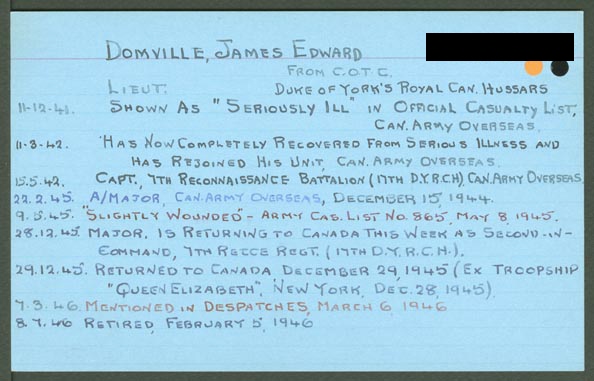 DOMVILLE, JAMES EDWARD
FROM C.O.T.C.
LIEUT. DUKE OF YORK'S ROYAL CAN. HUSSARS
11-12-41. SHOWN AS "SERIOUSLY ILL" IN OFFICIAL CASUALTY LIST,
CAN. ARMY OVERSEAS.
11-3-42. HAS NOW COMPLETELY RECOVERED FROM SERIOUS ILLNESS AND
HAS REJOINED HIS UNIT, CAN. ARMY OVERSEAS.
15.5.42. CAPT., 7TH RECONNAISSANCE BATTALION (17TH D.Y.R.C.H.) CAN. ARMY OVERSEAS.
22.2.45. A/MAJOR, CAN. ARMY OVERSEAS, DECEMBER 15, 1944.
9.5.45. "SLIGHTLY WOUNDED" - ARMY CAS. LIST NO. 865, MAY 8, 1945.
28.12.45. MAJOR, IS RETURNING TO CANADA THIS WEEK AS SECOND-IN-
COMMAND, 7TH RECCE REGT. (17TH D.Y.R.C.H.).
29.12.45. RETURNED TO CANADA, DECEMBER 29, 1945 (EX TROOPSHIP
"QUEEN ELIZABETH", NEW YORK, DEC. 28, 1945).
7.3.46 MENTIONED IN DESPATCHES, MARCH 6, 1946
8.7.46 RETIRED, FEBRUARY 5, 1946